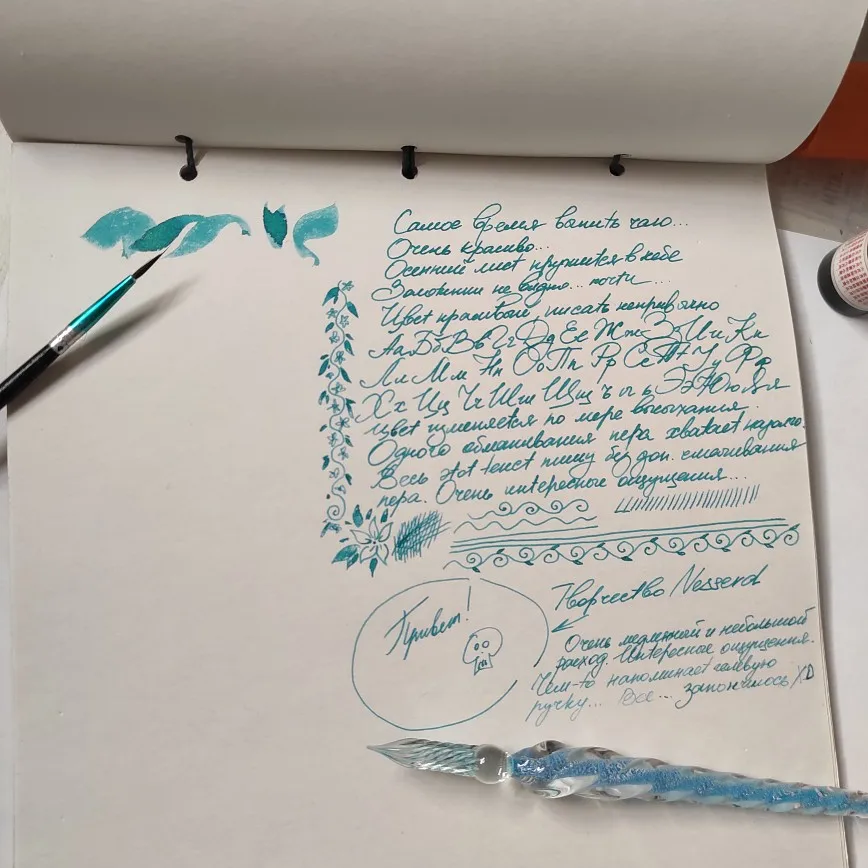 Самое время выпить чаю...
Очень красиво...
Осенний лист кружится в небе
Заложении не видно... почти...
Цвет красивый, писать непривычно
Аа Бб Вв Гг Дд Ее Жж Зз Ии Кк
Лл Мм Нн Оо Пп Рр Сс Тт Уу Фф
Хх Цц Чч Шш Щщ ъ ы ь Ээ Юю Яя
цвет изменяется по мере высыхания.
Одного обмакивания пера хватает надолго.
Весь этот текст пишу без доп. смачивания
пера. Очень интересные ощущения...
Творчество Nessend
Привет!
Очень медленный и небольшой
расход. Интересные ощущения.
Чем-то напоминает гелевую
ручку... Все... закончилось XD